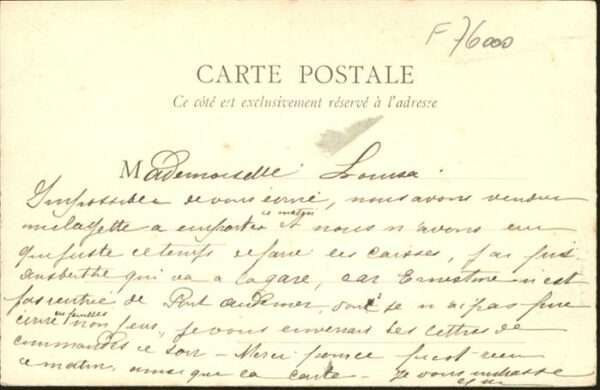 F 76000
CARTE POSTALE
Ce côté est exclusivement réservé à l'adresse
Mademoiselle Louisa
Impossible de vous écrire, nous avons vendu
une layette a emporter ce matin et nous n'avons eu
que juste le temps refaire les caisses, j'ai
Berthe qui va a la gare, car Ernestine n'est
pas rentrée de Pont Audemer, donc je n'ai pas pu
écrire non plus, je vous enverrai les lettres de
commandes ce soir - Merci
ce matin, ainsi que la carte - Je vous